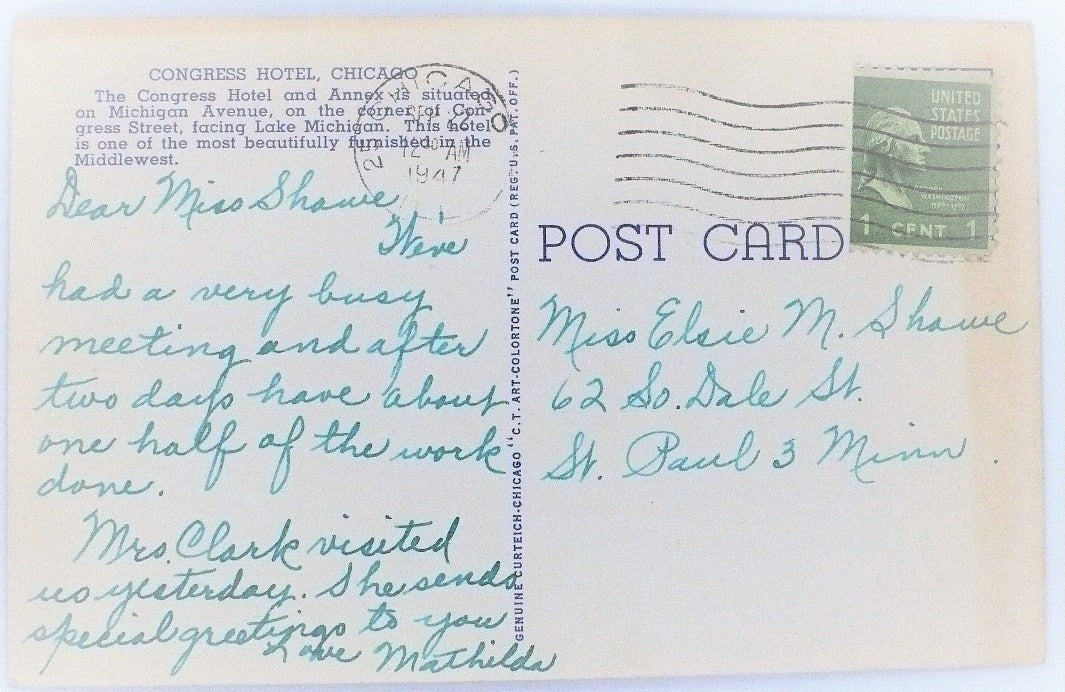 CONGRESS HOTEL, CHICAGO
The Congress Hotel and Annex is situated
on Michigan Avenue, on the corner of Con-
gress Street, facing Lake Michigan. This hotel
is one of the most beautifully furnished in the
Middlewest.
Dear Miss Shawe,
We've
had a very busy
meeting and after
two days have about
one half of the work
done.
Mrs. Clark visited
us yesterday. She sends
special greetings to you
Love Mathilda
GENUINE CURTEICH-CHICAGO "C.T. ART-COLORTONE" POST CARD (REG. U.S. PAT. OFF.)
CHICAGO
12 AM
1947
UNITED
STATES
POSTAGE
WASHINGTON
1 CENT 1
POST CARD
Miss Elsie M. Shawe
62 So. Dale St.
St. Paul 3 Minn.